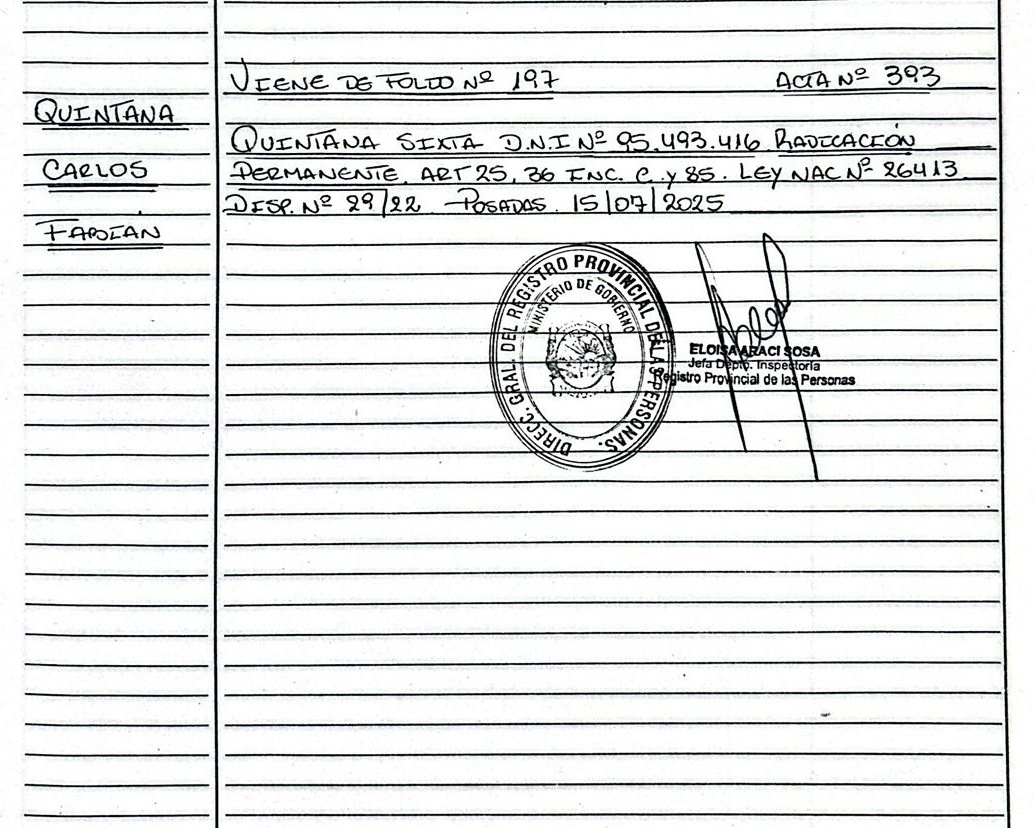 VIENE DE FOLIO Nº 197 ACTA Nº 393
QUINTANA
CARLOS
FABIÁN
QUINTANA SIXTA D.N.I Nº 95.493.416 RADICACIÓN
PERMANENTE. ART 25, 36 INC. C. y 85. LEY NAC Nº 26413
DISP. Nº 29/22 POSADAS. 15/07/2025
DIRECC. GRAL. DEL REGISTRO PROVINCIAL DE LAS PERSONAS.
MINISTERIO DE GOBIERNO
ELOISA ARACI SOSA
Jefa Depto. Inspectoria
Registro Provincial de las Personas